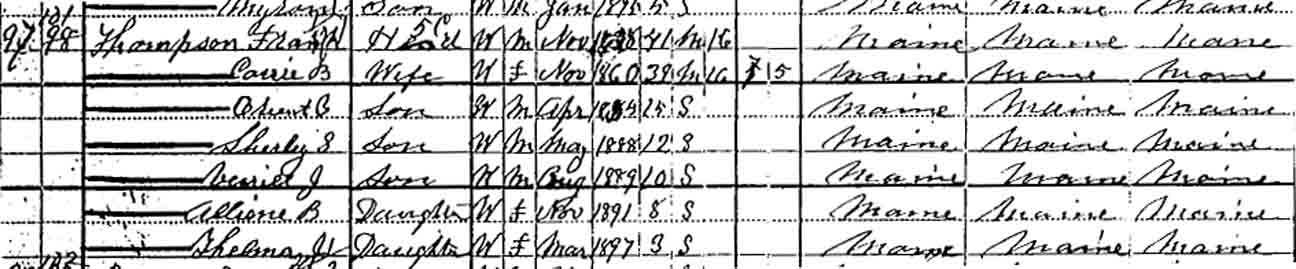 Son W M Jan 5 S Maine Maine Maine
97 98 Thompson Frank H Head W M Nov 1858 41 M 16 Maine Maine Maine
Carrie B Wife W F Nov 1860 39 M 16 7 5 Maine Maine Maine
C Son W M Apr 15 S Maine Maine Maine
Sherley S Son W M May 1888 12 S Maine Maine Maine
J Son W M Aug 1889 10 S Maine Maine Maine
B Daughter W F Nov 1891 8 S Maine Maine Maine
Thelma Daughter W F Mar 1897 3 S Maine Maine Maine